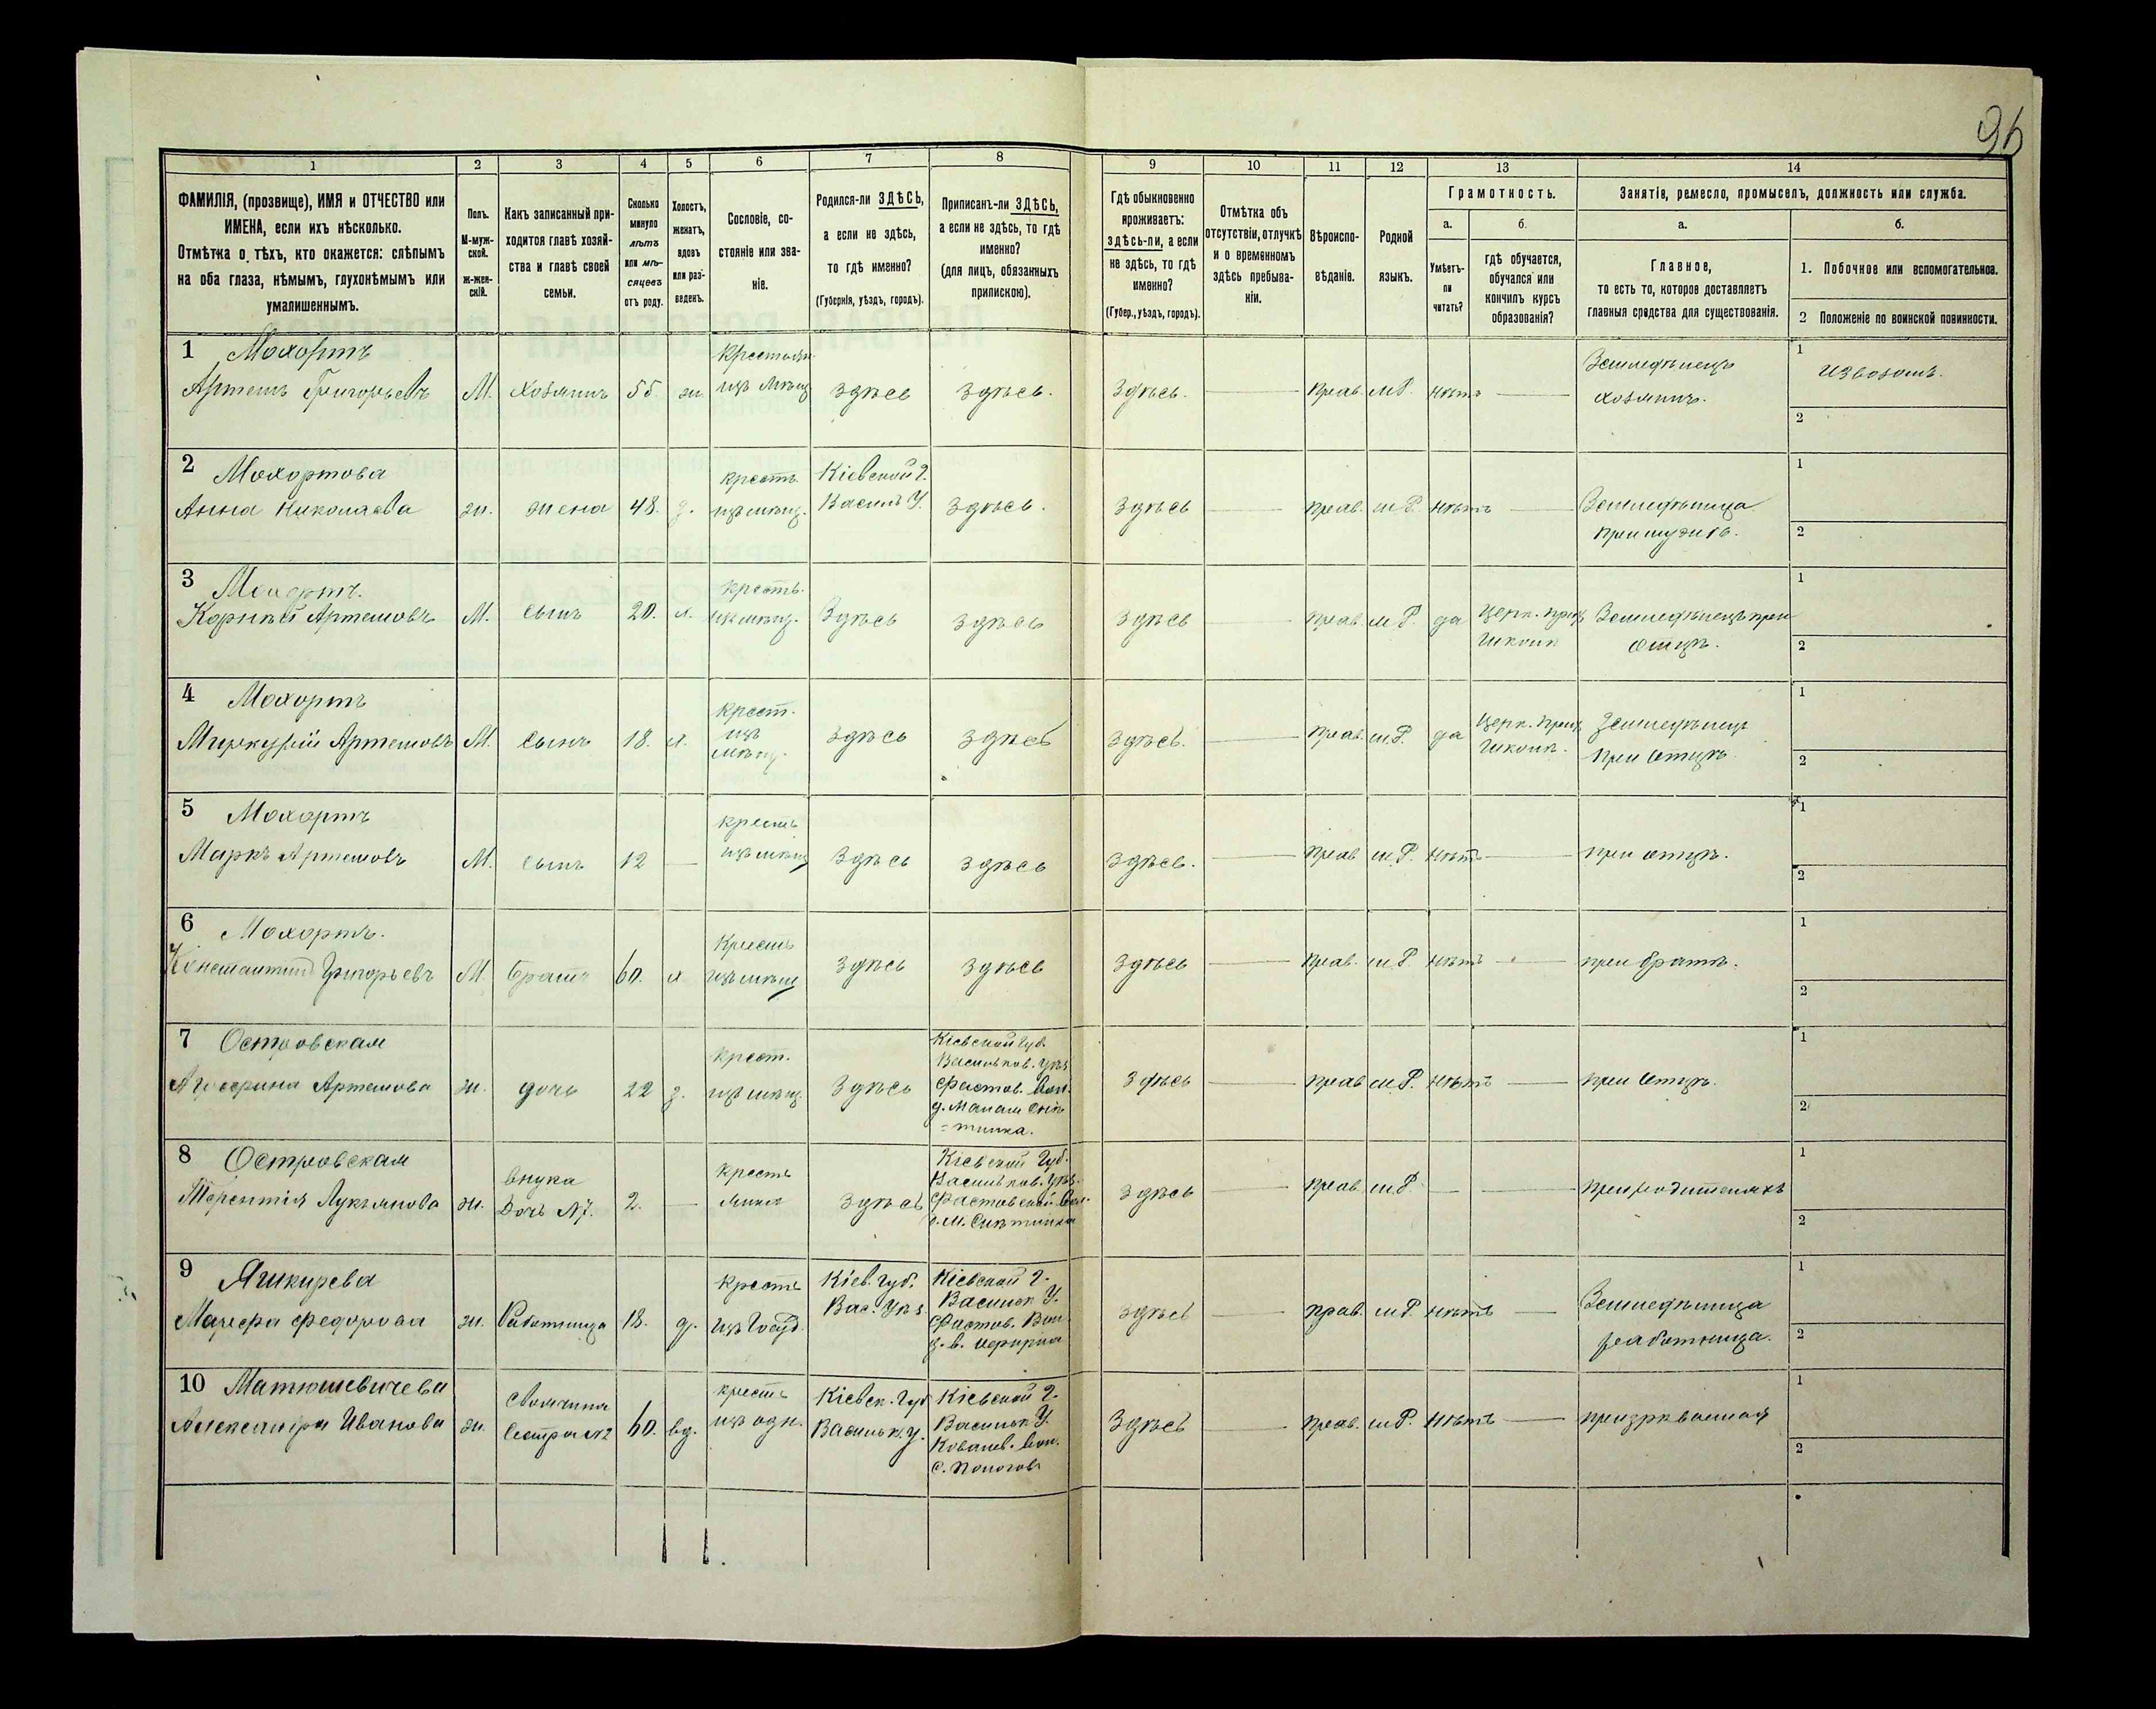 96
1 2 3 4 5 6 7 8 9 10 11 12 13 14
ФАМИЛІЯ, (прозвище), ИМЯ и ОТЧЕСТВО или
ИМЕНА, если ихъ нѣсколько.
Отмѣтка о тѣхъ, кто окажется: слѣпымъ
на оба глаза, нѣмымъ, глухонѣмымъ или
умалишеннымъ.
Полъ.
М-муж-
ской.
ж-жен-
скій.
Какъ записанный при-
ходится главѣ хозяй-
ства и главѣ своей
семьи.
Сколько
минуло
лѣтъ
или мѣ-
сяцевъ
отъ роду.
Холостъ,
женатъ,
вдовъ
или раз-
веденъ.
Сословіе, со-
стояніе или зва-
ніе.
Родился-ли ЗДѢСЬ,
а если не здѣсь,
то гдѣ именно?
(Губернія, уѣздъ, городъ).
Приписанъ-ли ЗДѢСЬ,
а если не здѣсь, то гдѣ
именно?
(для лицъ, обязанныхъ
припискою).
Гдѣ обыкновенно
проживаетъ:
здѣсь-ли, а если
не здѣсь, то гдѣ
именно?
(Губер., уѣздъ, городъ).
Отмѣтка объ
отсутствіи, отлучкѣ
и о временномъ
здѣсь пребыва-
ніи.
Вѣроиспо-
вѣданіе.
Родной
языкъ.
Грамотность.
а.
Умѣетъ-
ли
читать?
б.
гдѣ обучается,
обучался или
кончилъ курсъ
образованія?
Занятіе, ремесло, промыселъ, должность или служба.
а.
Главное,
то есть то, которое доставляетъ
главныя средства для существованія.
б.
1. Побочное или вспомогательное.
2 Положеніе по воинской повинности.
1 Мохортъ крестьян Земледѣлецъ 1 извозомъ.
Артемъ Григорьевъ М. хозяинъ 55 ж. здѣсь здѣсь. Здѣсь. прав. мР. нѣтъ хозяинъ. 2
2 Мохортова крестъ Кіевской г. 1
Анна Николаева ж. жена 48. з. Василь У. здѣсь. здѣсь прав. мР. нѣтъ Земледѣлица
при мужѣ. 2
3 Мохортъ. крестъ. 1
Корнѣй Артемовъ М. сынъ 20. х. Здѣсь здѣсь здѣсь прав. мР. да Церк. прих Земледѣлецъ при
школѣ отцѣ. 2
4 Мохортъ крест. 1
Меркурій Артемовъ М. сынъ 18. х. изъ здѣсь здѣсь здѣсь. прав. мР. да Церк. прих Земледѣлецъ
школѣ. при отцѣ 2
5 Мохортъ крестъ 1
Маркъ Артемовъ М. сынъ 12 здѣсь здѣсь здѣсь. прав мР. нѣтъ при отцѣ. 2
6 Мохортъ. Крестъ 1
Константинъ Григорьевъ М. братъ 60. х здѣсь здѣсь здѣсь прав. мР. нѣтъ при братѣ. 2
7 Островская крест. Кіевской губ. 1
Васильков. уѣз
Артемова ж. дочь 22 з. здѣсь Фастов. вол. здѣсь прав мР. нѣтъ при отцѣ. 2
8 Островская внука крестъ Кіевской Губ. 1
Васильков. уѣз.
Терентія Лукьянова ж. Дочь №7. 2. здѣсь Фастовской вол. здѣсь прав. мР. при родителяхъ 2
9 крестъ Кіев. Губ. Кіевской г. 1
Вас. уѣз Васильк У. Земледѣлица
Федорова ж. Работница 18. д. изъ Госуд. Фастов. Вол. здѣсь прав. мР. нѣтъ работница. 2
10 Матюшевичева Своячина крестъ Кіевск. Губ Кіевской г. 1
Александра Ивановa ж. сестра №2 60. вд. изъ одн. Васильк. у. Васильк У. Здѣсь прав. мР. нѣтъ призрѣваемая
Ковалев. вол. 2